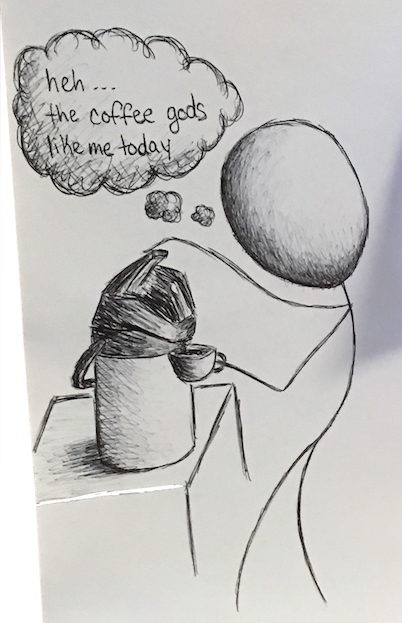 heh...
the coffee gods
like me today